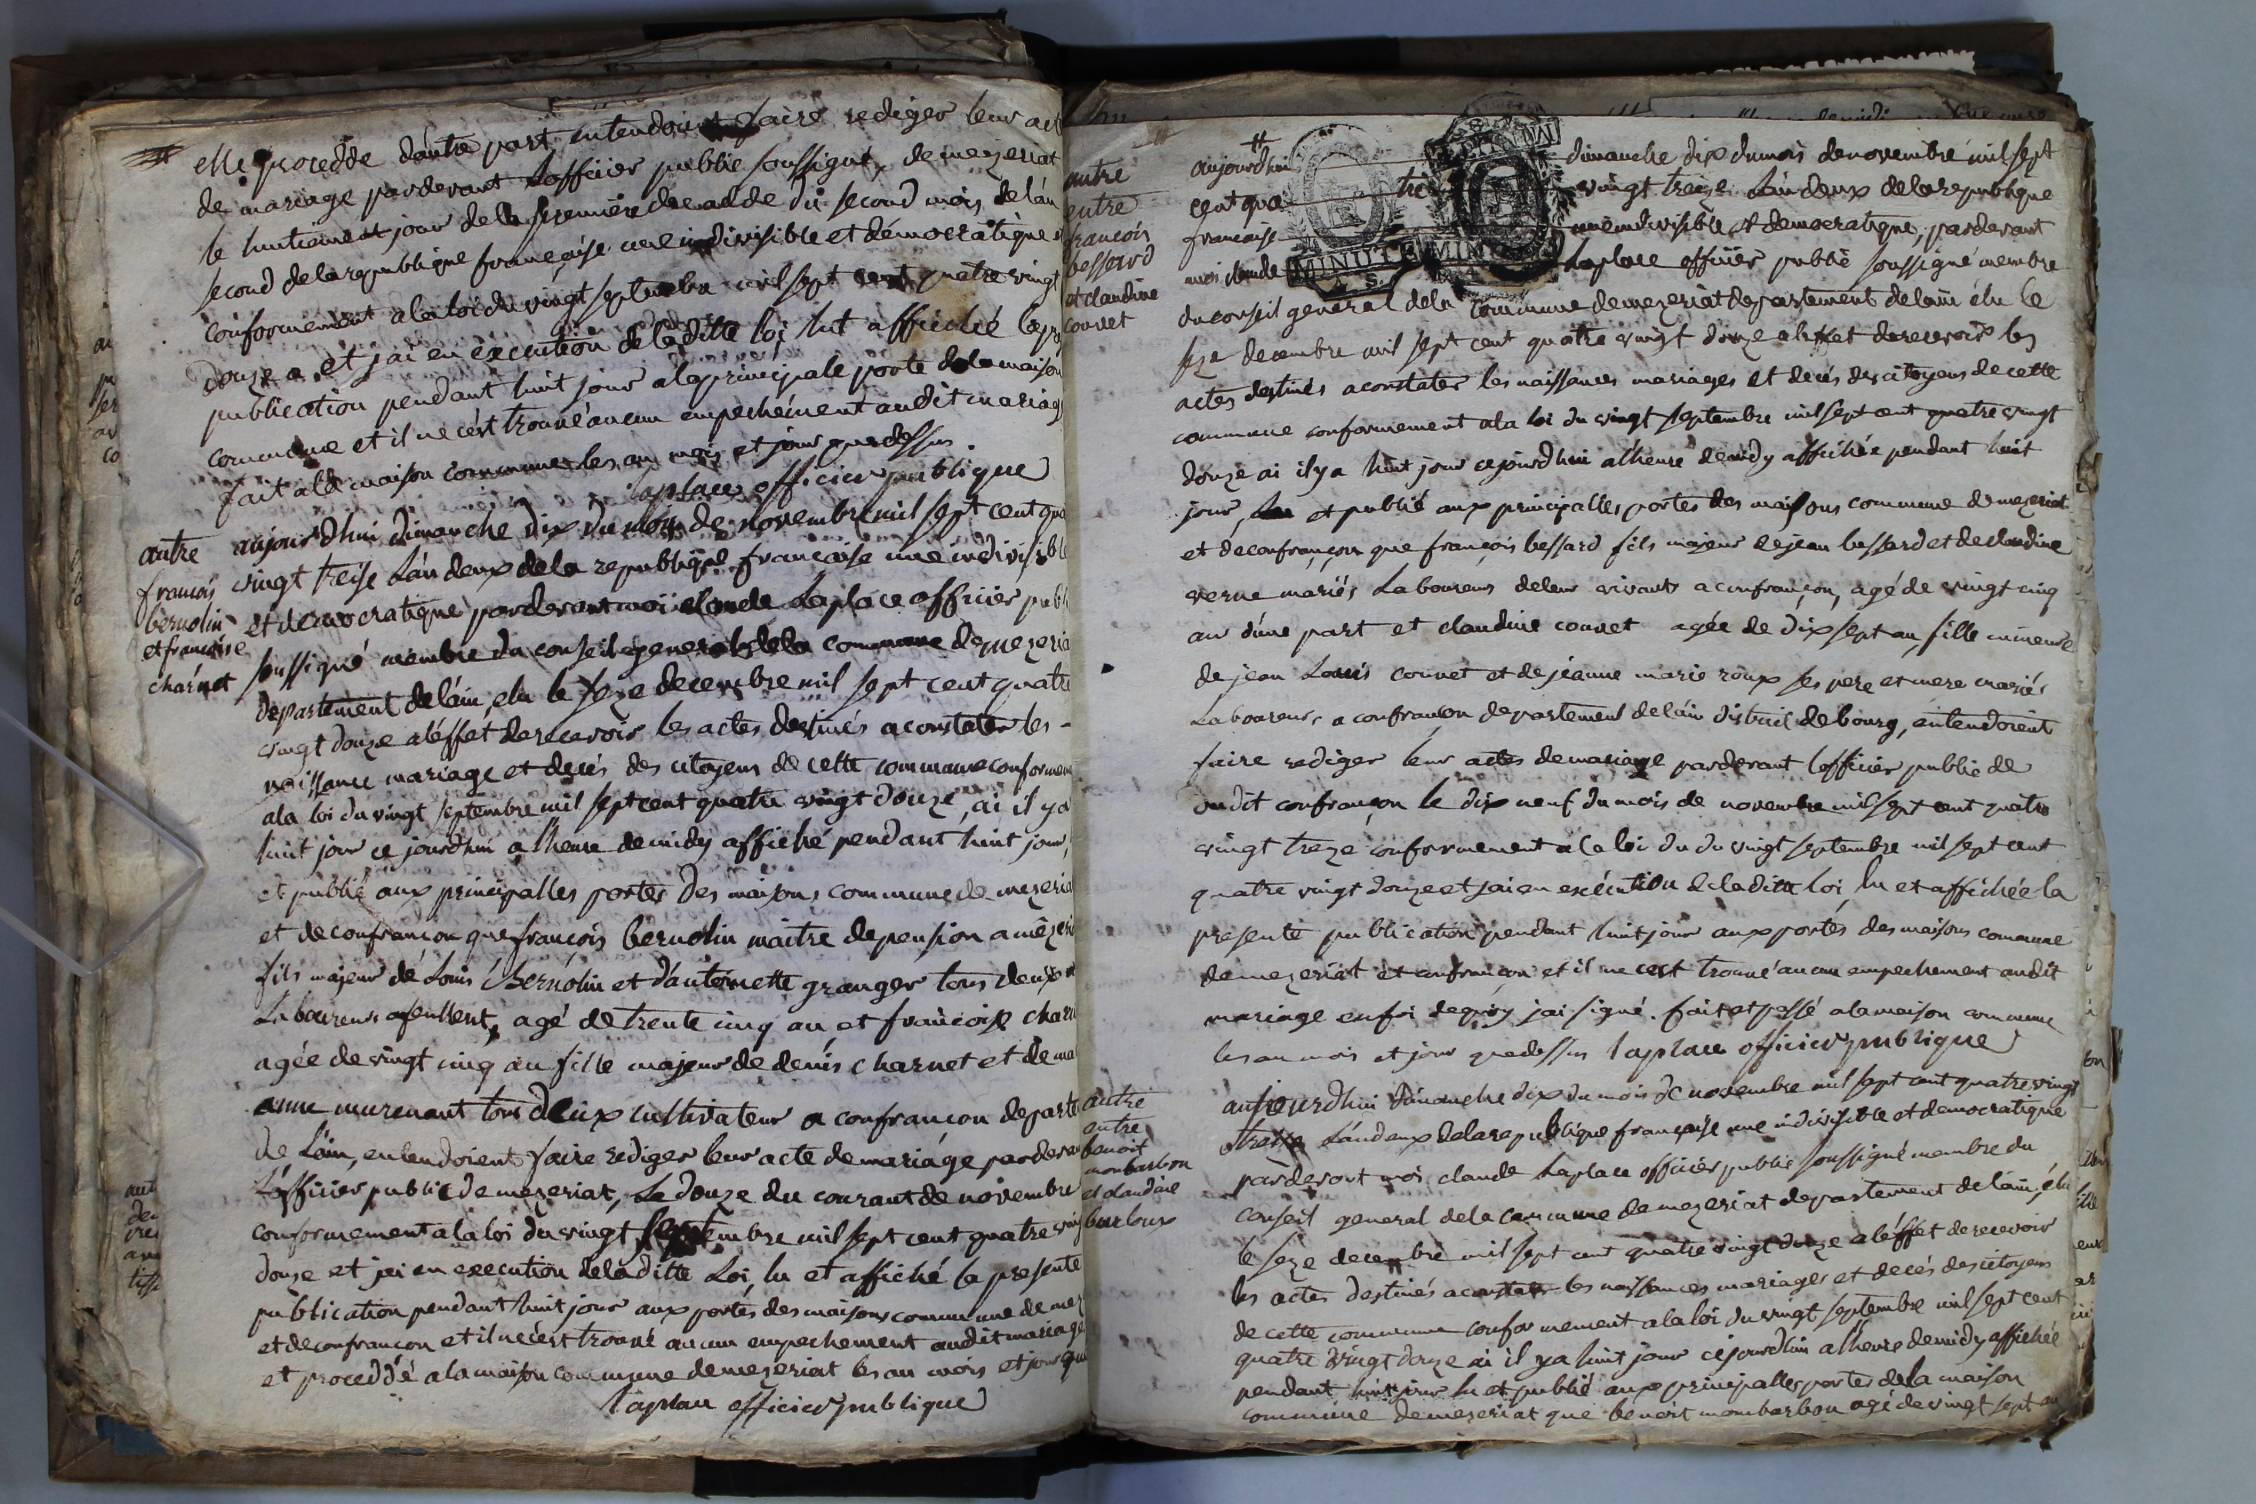 elle procedde dautre part entendoient faire rediger leur act
de mariage pardevant lofficier public soussigné, de mezeriat
le huitiement jour de la premiere decadde du second mois de lan
second de la republique francaise une indivisible et démocratique
conformement a la loi du vingt septembre mil sept cent quatre vingt
douze et jai en execution de la ditte loi lut affiché la
publication pendant huit jour a la principale porte de la maison
commune et il ne cést trouvé aucun empechément audit mariage
fait a la maison commune les an mois et jour que dessus.
laplace officier publique
autre
francois
bernolin
et francoise
charnet
aujourdhui dimanche dix du mois de novembre mil sept cent qua
vingt treise Lán deux de la republique francaise une indivisible
et democratique pardevant moi claude Laplace officier publ
soussigné membre du conseil general de la commune de mezeria
departement de láin, élu le seze decembre mil sept cent quatre
vingt douze aléffét de recevoir les actes destinés a constater les -
naissance mariage et decés des citoyens de cette commune conformem
a la loi du vingt septembre mil sept cent quatre vingt douze, ai il y a
huit jour ce jourdhui a lheure de midy affiché pendant huit jour,
et publié aux principalles portes des maisons commune de mezeria
et de confrancon que francois bernolin maitre de pension a mézeri
fils majeur de Louis Bernolin et dantoinette granger tous deux
Laboureur, agé de trente cinq an et francoise charn
agée de vingt cinq an fille majeur de denis charnet et de ma
anne murenant tous deux cultivateur a confrancon departe
de Láin, entendoient faire rediger leur acte de mariage pardeva
Lófficier public de mezeriat, Le douze du courant de noivembre
conformement a la loi du vingt septembre mil sept cent quatre ving
douze et jai en execution de la ditte Loi, lu et affiché la presente
publication pendant huit jour aux portes des maisons commune de mez
et de confrancon et il ne cést trouvé aucun empechement audit mariage
et procéddé a la maison commune de mezeriat les an mois et jour que
laplace officier publique
autre
entre
francois
bessard
et claudine
couvet
aujourdhui dimanche dix du mois de novembre mil sept
cent qua tre vingt treize Lán deux de la republique
francaise une indivisible et democratique, pardevant
moi claude Laplace officier public soussigné membre
MINUTE
MINUTE
du conseil general de la commune de mezeriat departement de lain élu le
seze decembre mil sept cent quatre vingt douze a leffet de recevoir les
actes destinés a constater les naissances mariages et decés des citoyens de cette
commune conformement a la loi du vingt septembre mil sept cent quatre vingt
douze ai il y a huit jour ce jourdhui a lheure de midy affichée pendant huit
jour, et publié aux principalles portes des maisons commune de mezeriat
et de confrançon que françois bessard fils majeur de jean bessard et de claudine
verne mariés Laboureurs de leur vivants a confrançon, agé de vingt cinq
an dúne part et claudine couvet agée de dix sept an, fille mineure
de jean Louis couvet et de jeanne marie roux ses pere et mere mariés
Laboureurs a confrancon departement de láin district de bourg, entendoient
faire rediger leur actes de mariage pardevant lofficier public de
dudit confrançon le dix neuf du mois de novembre mil sept cent quatre
vingt treze conformement a la loi du du vingt septembre mil sept cent
quatre vingt douze et jai en exécution de la ditte loi, lu et affichée la
presente publication pendant huit jour aux portes des maisons commune
de mezeriat et confrançon et il ne cest trouvé aucun empechement audit
mariage en foi de quoy jai signé. fait et passé a la maison commune
les an mois et jour que dessus laplace officier publique
autre
entre
benoit
monbarbon
et claudine
burloux
aujourdhui dimanche dix du mois de novembre mil sept cent quatre vingt
treise Lán deux de la republique française une indivisible et democratique
pardevant moi claude Laplace officier public soussigné membre du
conseil general de la commune de mezeriat departement de láin, élu
le seze decembre mil sept cent quatre vingt douze a léffet de recevoir
les actes destinés a constater les naissances mariages et decés des citoyens
de cette commune conformement a la loi du vingt septembre mil sept cent
quatre vingt douze ai il y a huit jour ce jourdhui a lheure de midy affichée
pendant huit jour lu et publié aux principalles portes de la maison
commune de mezeriat que benoit monbarbon agé de vingt sept an